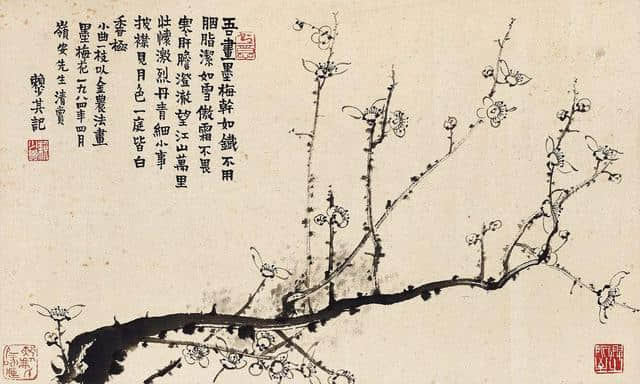 吾畫墨梅幹如鐵不用
胭脂潔如雪傲霜不畏
寒肝膽澄澈望江山萬里
壯懷激烈丹青細小事
披襟見月色一庭皆白
香極
小曲一枝以金農法畫
墨梅花一九八四年四月
嶺安先生清賞
賴其記